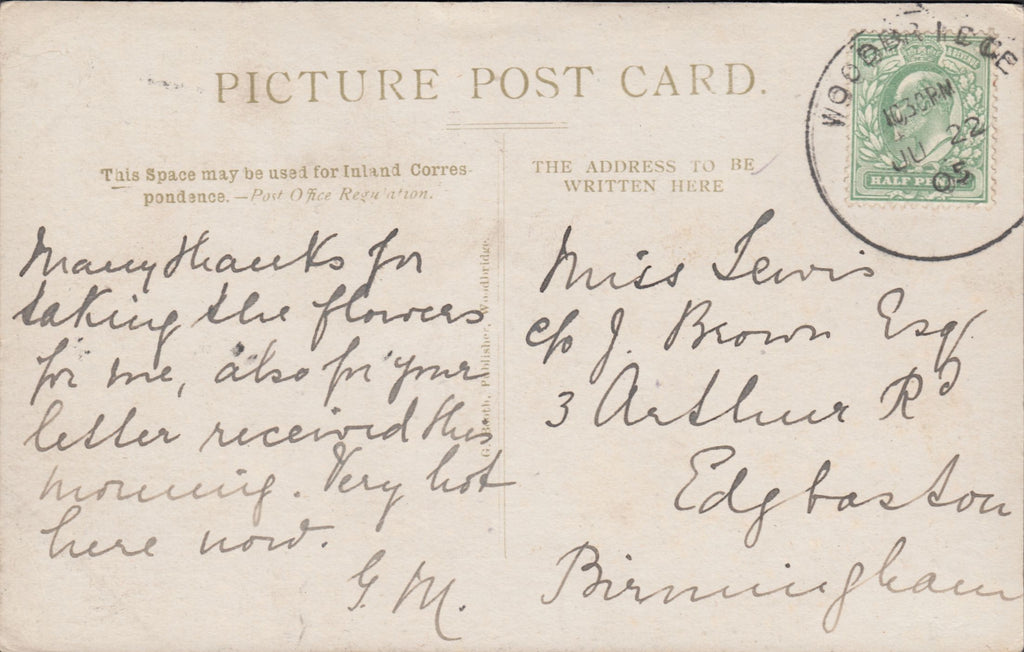 PICTURE POST CARD.
This Space may be used for Inland Corres-
pondence.—Post Office Regulation.
THE ADDRESS TO BE
WRITTEN HERE
WOODBRIDGE
10.30PM
JU 22
05
HALF PENNY
Many thanks for
taking the flowers
for me, also for your
letter received this
morning. Very hot
here now.
G. M.
G. Booth, Publisher, Woodbridge.
Miss Lewis
c/o J. Brown Esq
3 Arthur Rd
Edgbaston
Birmingham